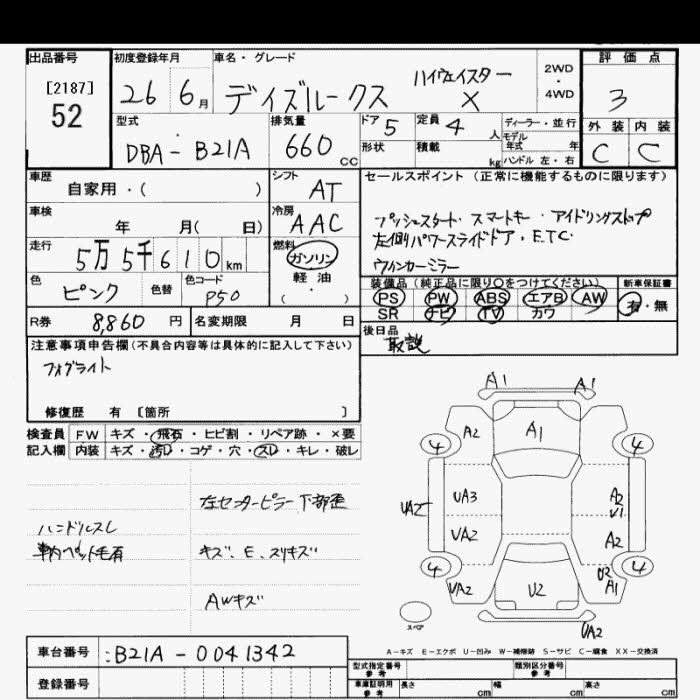 出品番号
[2187]
52
初度登録年月
26 6月
車名・グレード
ハイウェイスター
デイズルークス X
2WD
・
4WD
評価点
3
外装 内装
C C
型式
DBA-B21A
排気量
660 cc
ドア 5
形状
定員 4 人
積載 kg
ディーラー・並行
モデル
年式 年
ハンドル 左・右
車歴
自家用・( )
シフト
AT
車検
年 月( 日)
冷房
AAC
走行
5万5千610km
燃料
ガソリン
軽油
( ・ )
色
ピンク
色替
色コード
P50
R券 8,860 円
名変期限 月 日
セールスポイント(正常に機能するものに限ります)
プッシュスタート・スマートキー・アイドリングストップ
左側パワースライドドア・ETC
ウィンカーミラー
装備品(純正品に限り○をつけてください)
PS PW ABS エアB AW
SR ナビ TV カワ
新車保証書
有・無
後日品
取説
注意事項申告欄(不具合内容等は具体的に記入して下さい)
フォグライト
修復歴 有 [箇所 ]
検査員 FW キズ・飛石・ヒビ割・リペア跡・×要
記入欄 内装 キズ・汚レ・コゲ・穴・スレ・キレ・破レ
左センターピラー下部歪
ハンドルスレ
車内ペット毛有
キズ、E、スリキズ
AWキズ
A1 A1
A2 A1
4 4
UA3 A2
UA2 U1
UA2 A2
4 4
U2
UA2 U2 A1
UA2
スペア
A-キズ E-エクボ U-凹み W-補修跡 S-サビ C-腐食 XX-交換済
車台番号 :B21A-0041342
登録番号
型式指定番号
参考
類別区分番号
参考
車庫証明用
参考
長さ cm 幅 cm 高さ cm